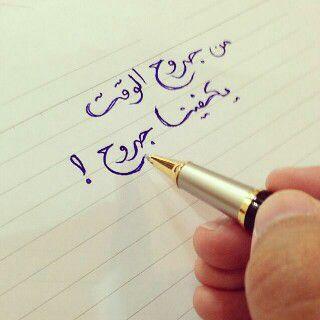 من جروح الوقت
يكفينا جروح !